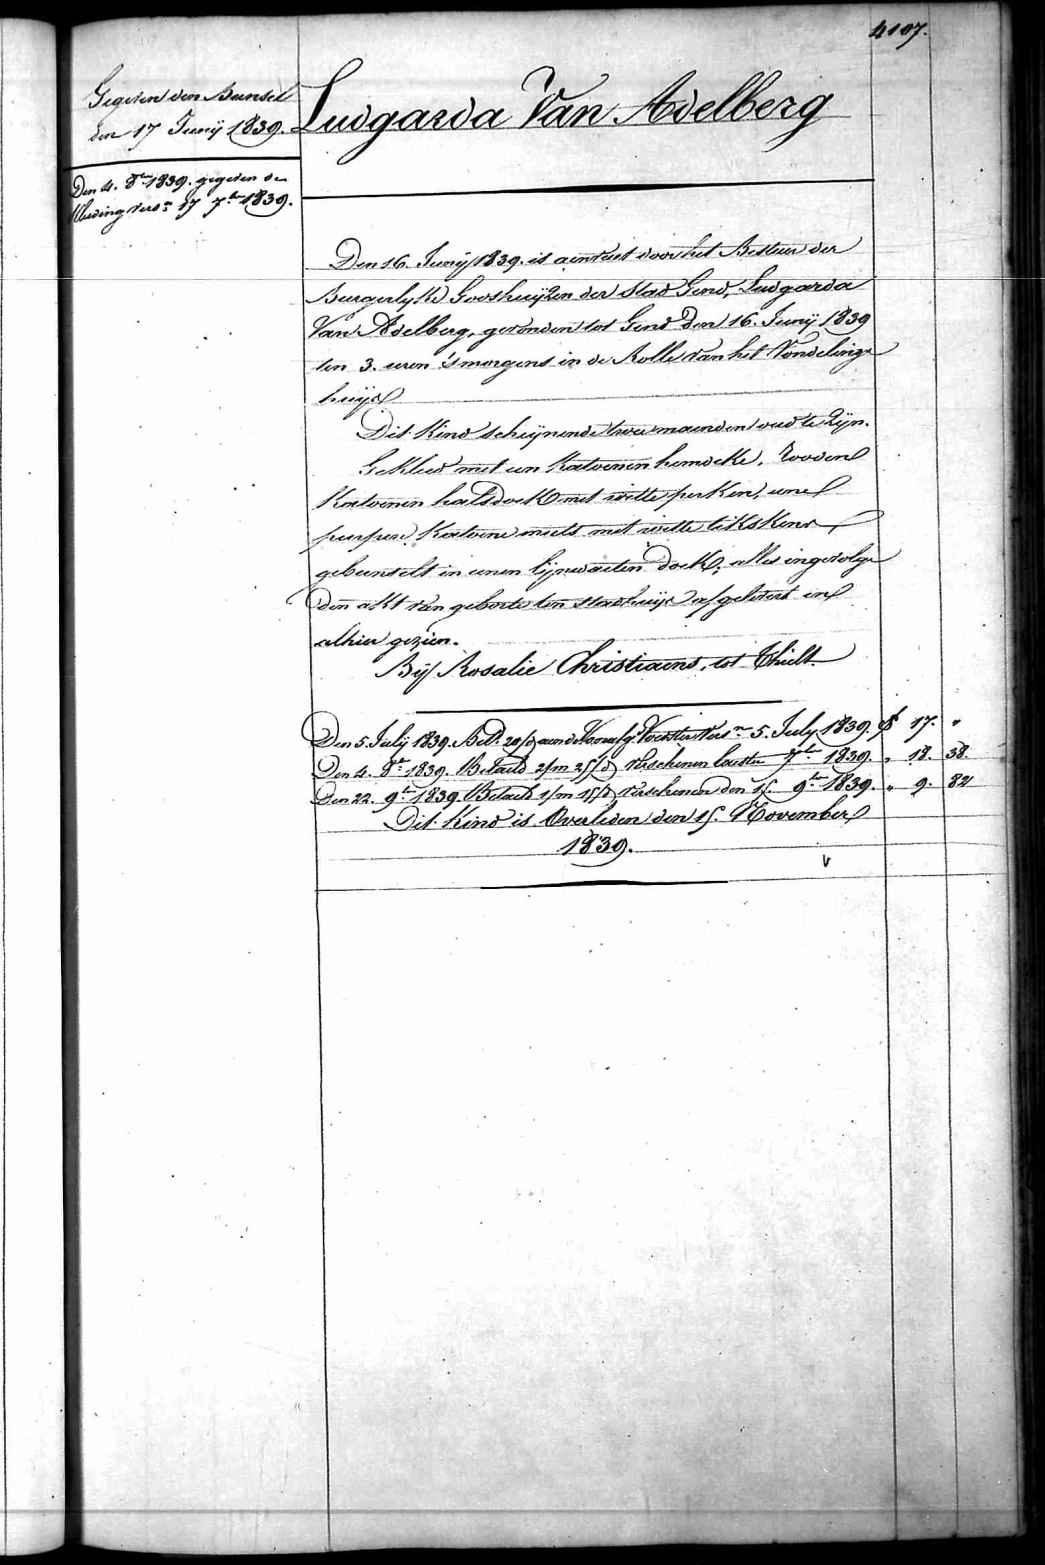 4107.
Gegeven den Bunsel
den 17 Junij 1839.
Den 4. 8br 1839. gegeven de
kleeding vers.n 17 7br 1839.
Ludgarda Van Adelberg
Den 16. Junij 1839. is aenveert door het Bestuer der
Burgerlyke Godshuijzen der Stad Gend, Ludgarda
Van Adelberg, gevonden tot Gend den 16. Junij 1839
ten 3. uren 's morgens in de Rolle van het Vondelinge
huijs
Dit Kind schijnende twee maenden oud te zijn.
Gekleed met een Katoenen hemdeke, rooden
Katoenen halsdoek met witte perken, eene
purpere Katoene muts met witte tikskens
gebunselt in eenen lijnwaeten doek, alles ingevolge
den akt van geboorte ten stadhuijs afgelevert en
alhier gezien.
Bij Rosalie Christiaens, tot Thielt
Den 5. Julij 1839. Bet.d 20/d aen de Voedster vers.n 5. July 1839. 17. "
Den 4. 8br 1839. Betaeld 2/m 25/d verschenen laesten 7br 1839. " 18. 38.
Den 22. 9br 1839. Betaeld 1/m 15/d verschenen den 15. 9br 1839. " 9. 82
Dit Kind is Overleden den 15. November
1839.